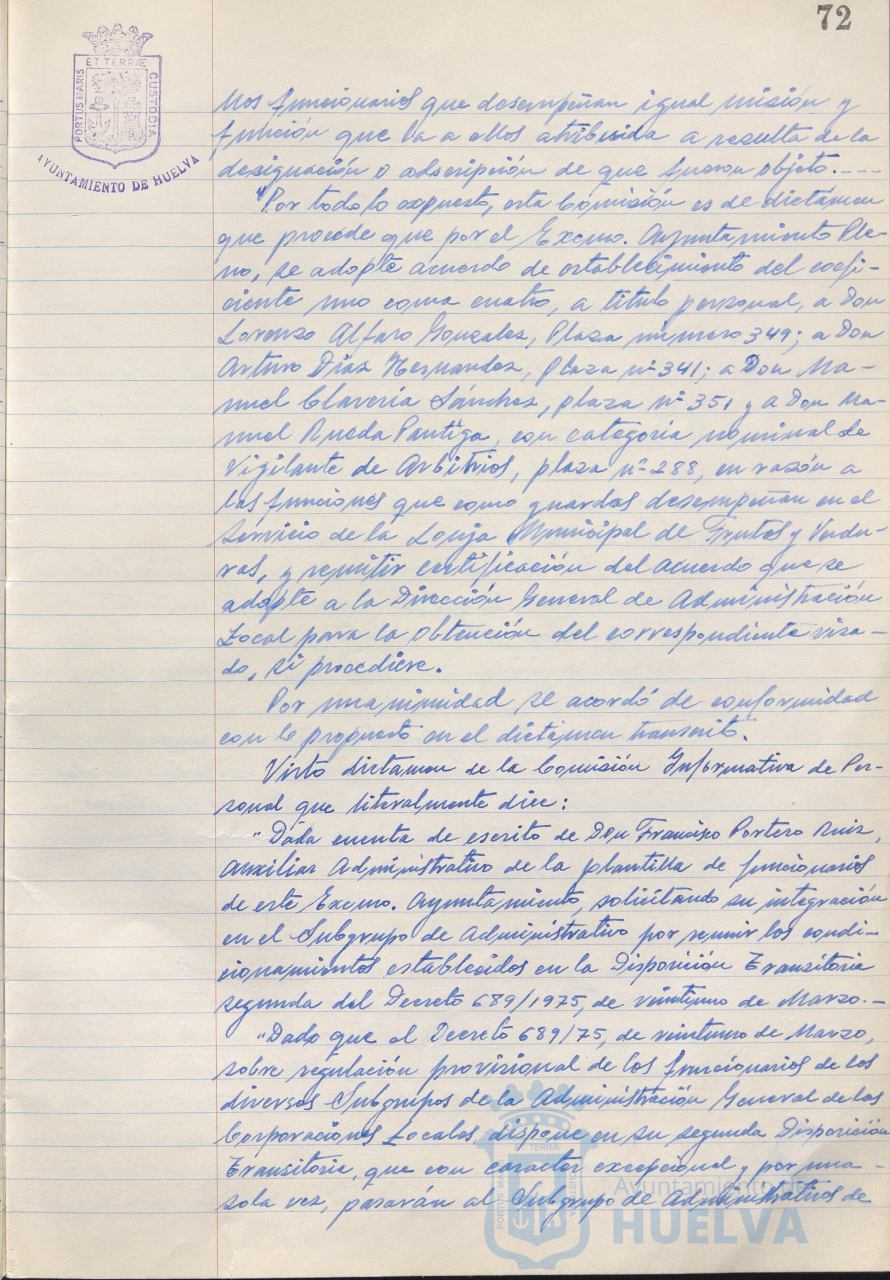 72
PORTUS MARIS ET TERRÆ CUSTODIA
AYUNTAMIENTO DE HUELVA
llos funcionarios que desempeñan igual misión y
función que la a ellos atribuida a resulta de la
designación o adscripción de que fueron objeto.----
"Por todo lo expuesto, esta Comisión es de dictámen
que procede que por el Excmo. Ayuntamiento Ple-
no, se adopte acuerdo de establecimiento del coefi-
ciente uno coma cuatro, a titulo personal, a Don
Lorenzo Alfaro Gonzalez, Plaza número 349; a Don
Arturo Díaz Hernandez, Plaza nº 341; a Don Ma-
nuel Clavería Sánchez, plaza nº 351 y a Don Ma-
nuel Rueda Pantiga, con categoria nominal de
Vigilante de Arbitrios, plaza nº 288, en razón a
las funciones que como guardas desempeñan en el
Servicio de la Lonja Municipal de Frutas y Verdu-
ras, y remitir certificación del acuerdo que se
adopte a la Dirección General de Administración
Local para la obtención del correspondiente visa-
do, si procediere.
Por unanimidad se acordó de conformidad
con lo propuesto en el dictámen transcrito.
Visto dictamen de la Comisión Informativa de Per-
sonal que literalmente dice:
"Dada cuenta de escrito de Don Francisco Portero Ruiz,
Auxiliar Administrativo de la plantilla de funcionarios
de este Excmo. Ayuntamiento, solicitando su integración
en el Subgrupo de Administrativo por reunir los condi-
cionamientos establecidos en la Disposición Transitoria
segunda del Decreto 689/1975, de veintiuno de Marzo.-
"Dado que el Decreto 689/75, de veintiuno de Marzo,
sobre regulación provisional de los funcionarios de los
diversos Subgrupos de la Administración General de las
Corporaciones Locales, dispone en su segunda Disposición
Transitoria, que con caracter excepcional y por una
sola vez, pasarán al Subgrupo de Administrativos de
Ayuntamiento de
HUELVA